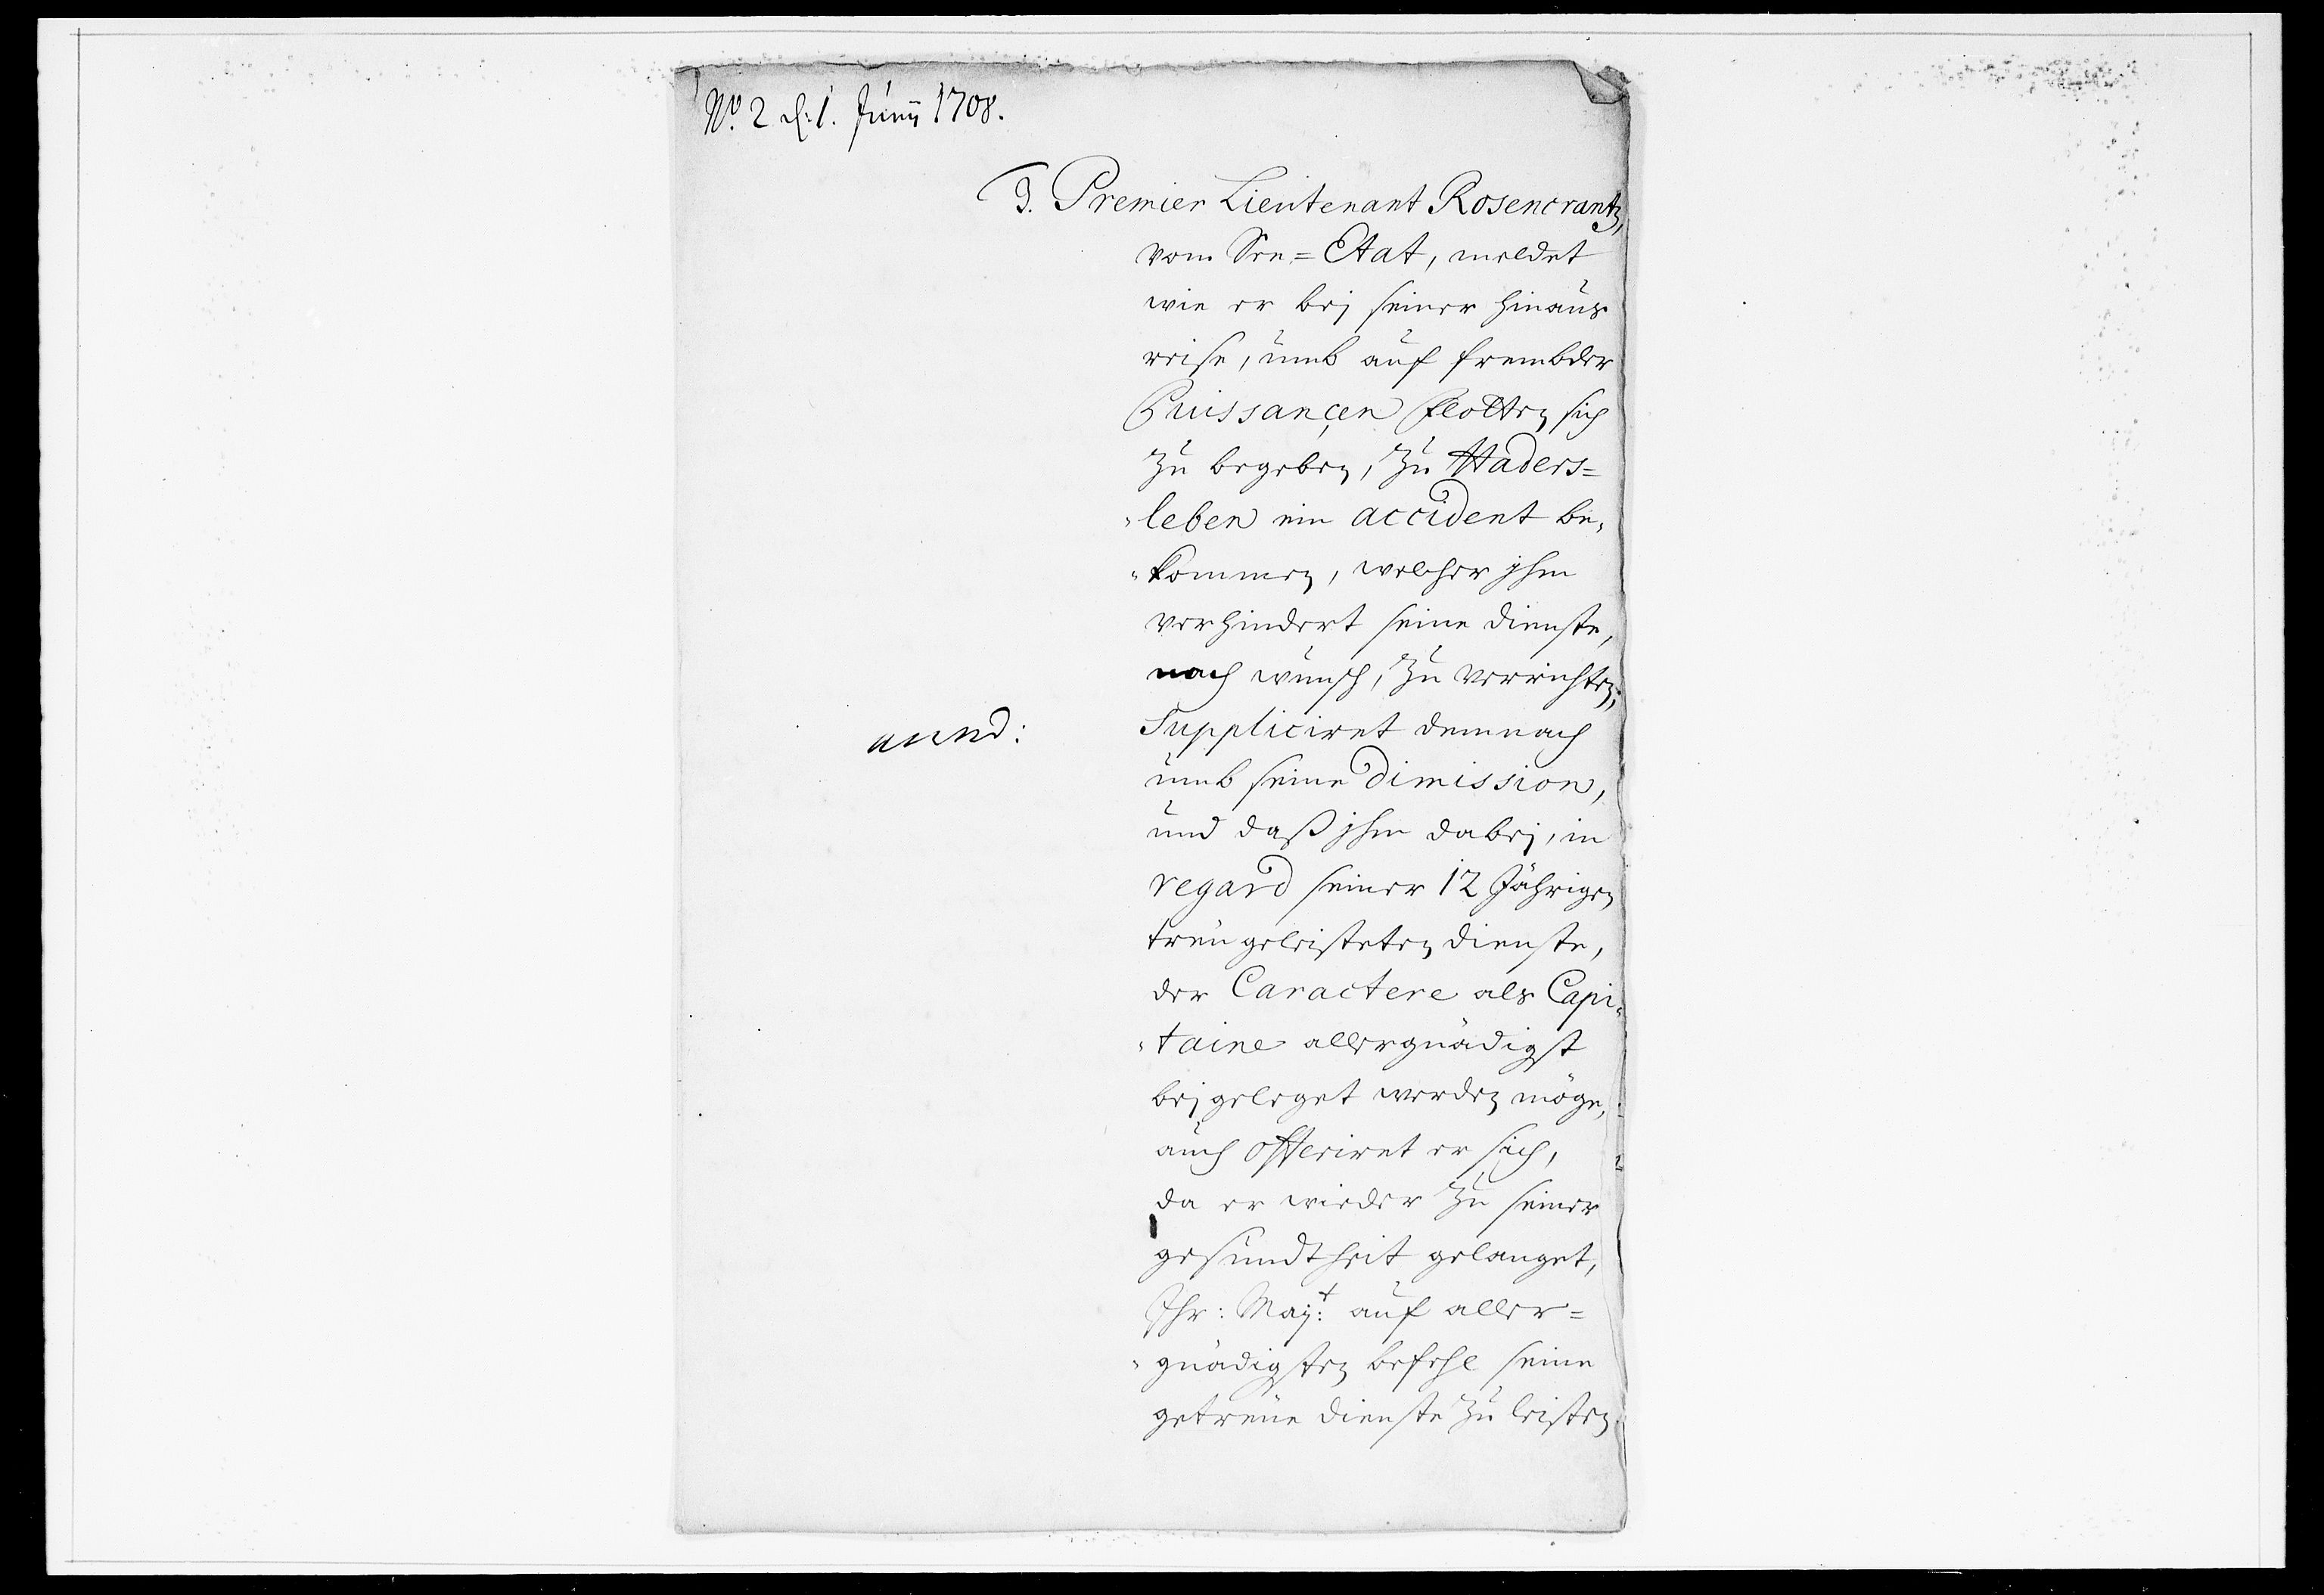 No. 2 d. 1. Junij 1708.
3. Premier Lieutenant Rosencrantz,
vom See=Etat, meldet
wie er bej seiner hinaus
reise, umb auf frembder
Puissancen flotten sich
zu begeben, zu Haders=
leben ein accident be-
kommen, welcher jhm
verhindert seine dienste,
nach wunsch, zu verrichten;
Suppliciret demnach
umb seine dimission,
und daß jhm dabej, in
regard seiner 12 Jährigen
treu geleisteten dienste,
der Caractere als Capi-
taine allergnädigst
bejgeleget werden möge,
auch offeriret er sich,
da er wieder zu seiner
gesundtheit gelanget,
Ihr: Majt: auf aller=
gnädigsten befehl seine
getreue dienste zu leisten.